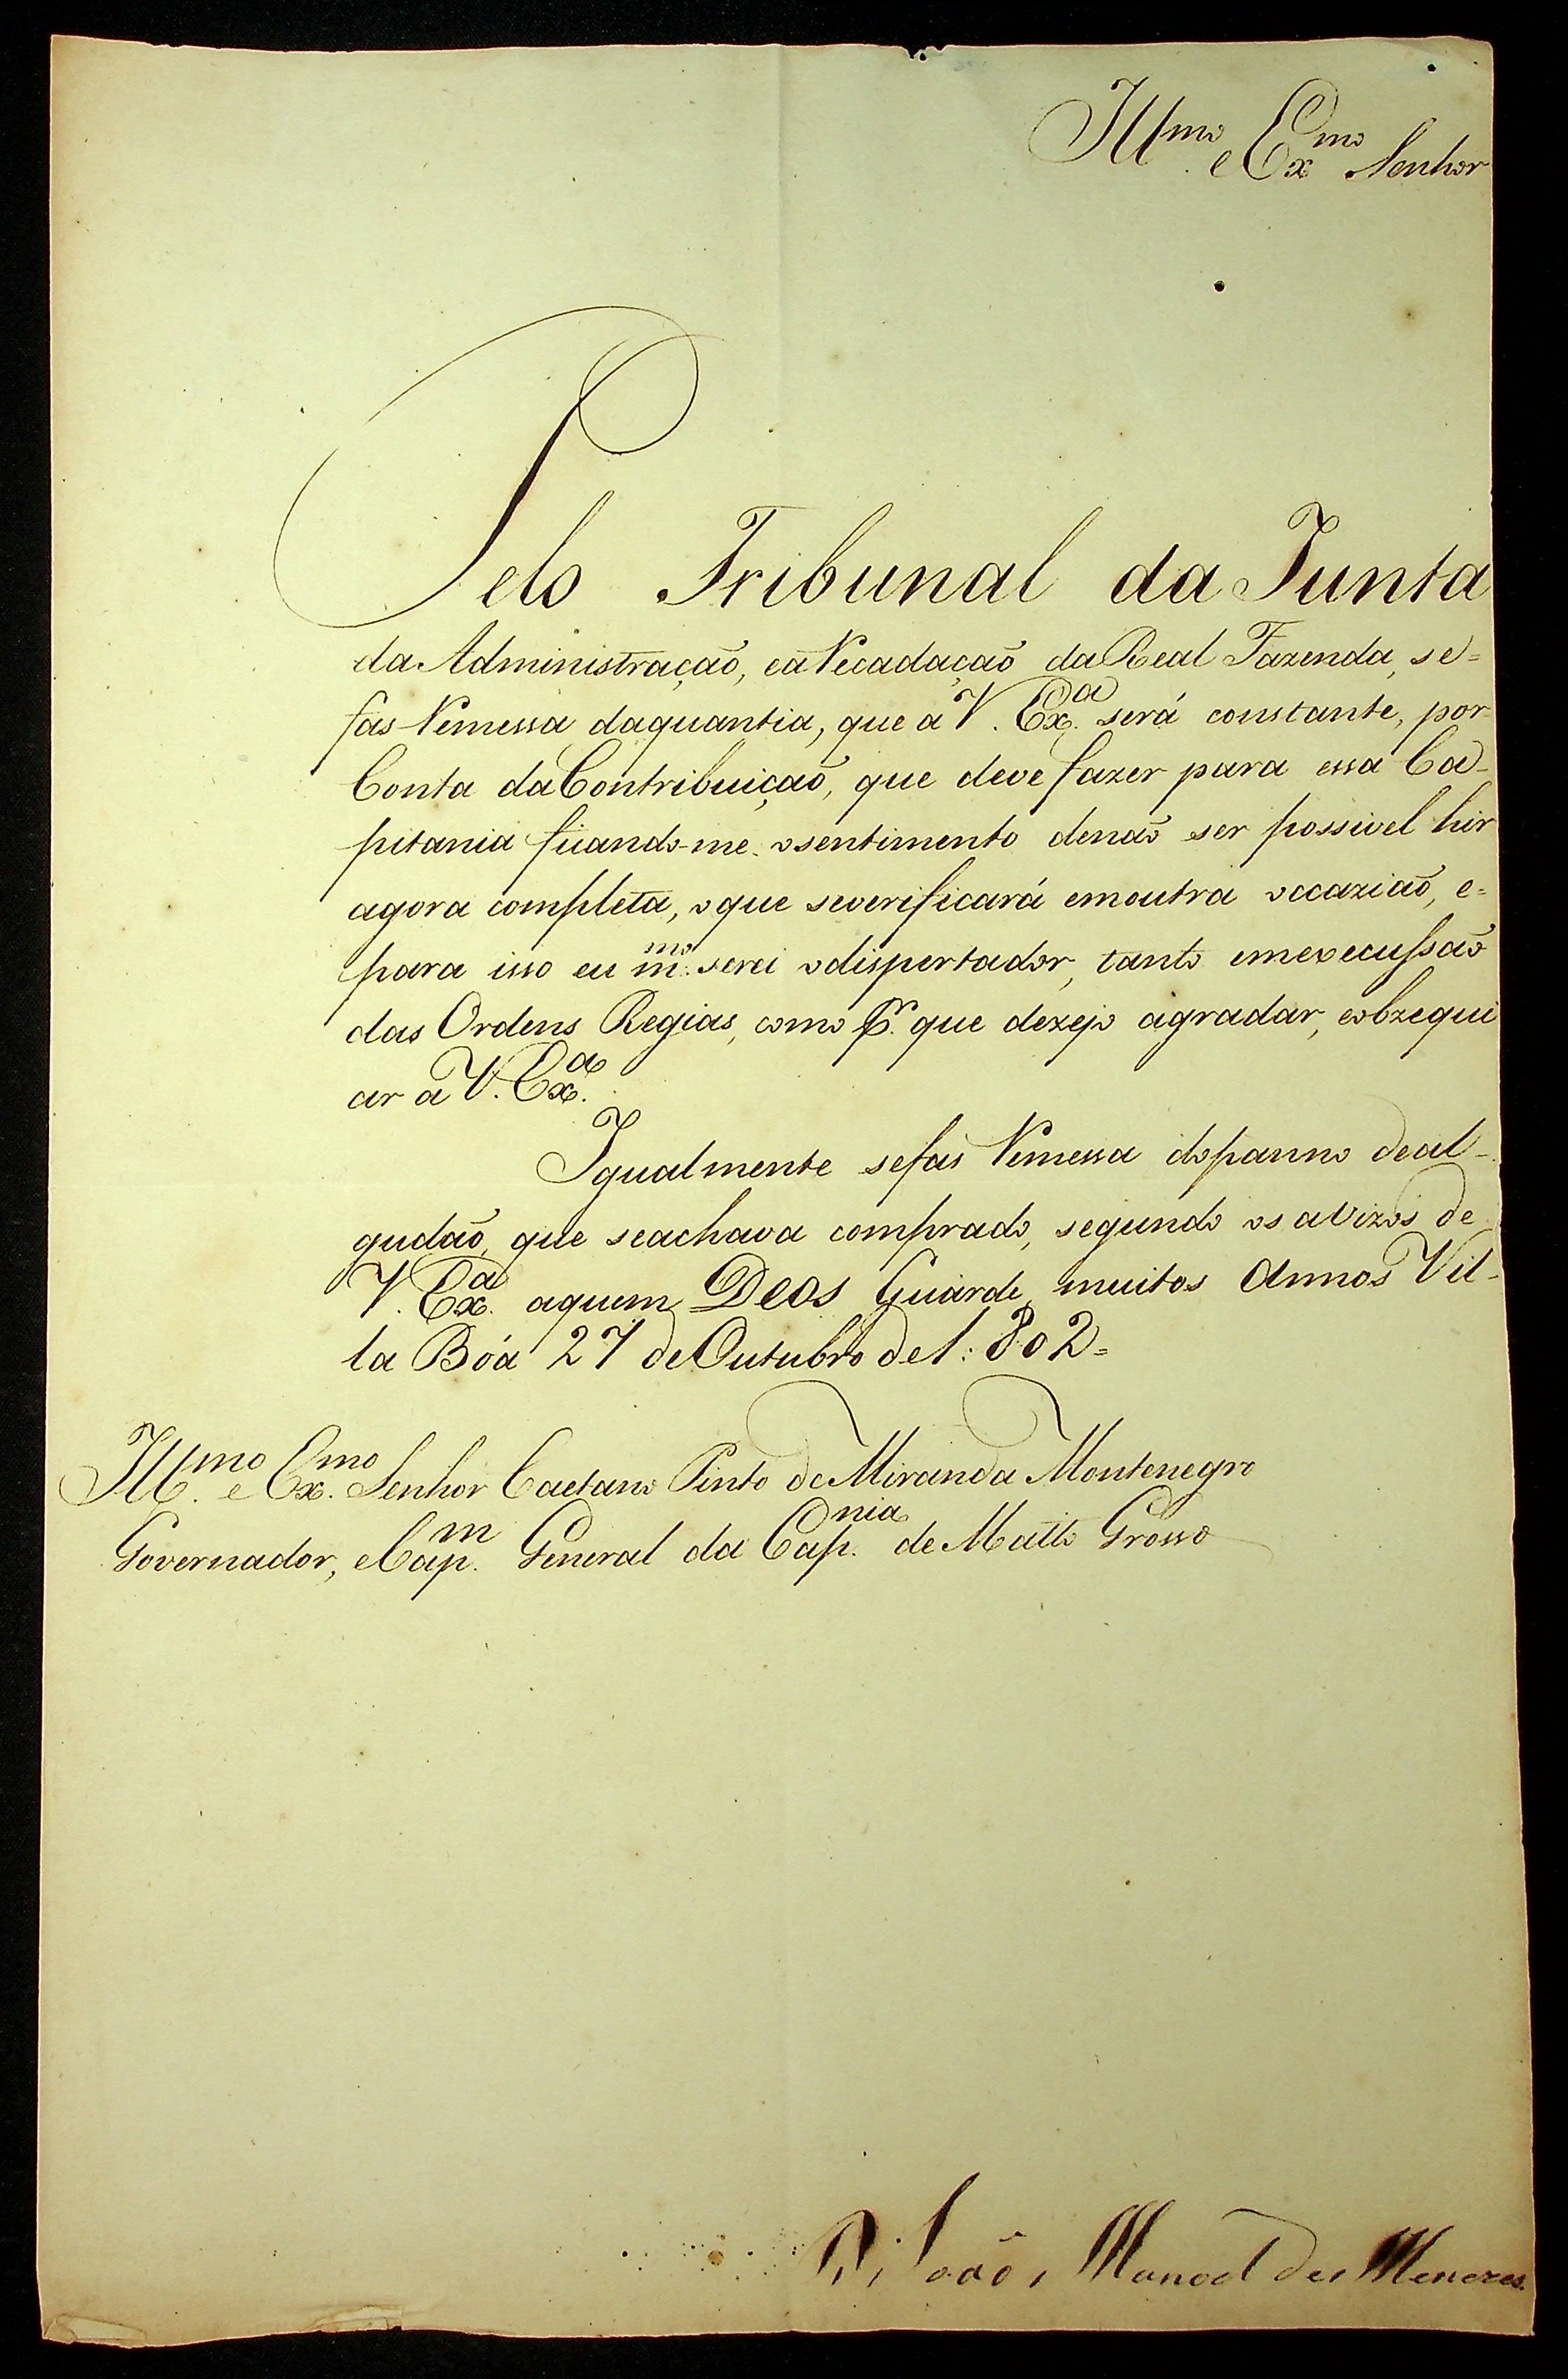 Ill.mo e Ex.mo Senhor
Pelo Tribunal da Junta
da Administração, eaRecadação daReal Fazenda, se=
fas Remessa daquantia, que aV. Ex.a será constante, por
Conta daContribuição, que deve fazer para essa Ca-
pitania ficando-me osentimento denaõ ser possivel hir
agora completa, oque severificará emoutra occaziaõ, e=
para isso eu m.mo serei odispertador, tanto emexecussaõ
das Ordens Regias, como p.r que dezejo agradar, eobzequi
ar aV. Ex.a
Igualmente sefas Remessa dopanno deal-
gudaõ, que seachava comprado, segundo os avizos de
V. Ex.a aquem Deos Guarde muitos Annos Vil-
la Bôa 27 deOutubro de1:802=
Ill.mo e Ex.mo Senhor Caetano Pinto deMiranda Montenegro
Governador, eCap.m General da Cap.nia deMatto Grosso
D. Joaõ Manoel de Menezes